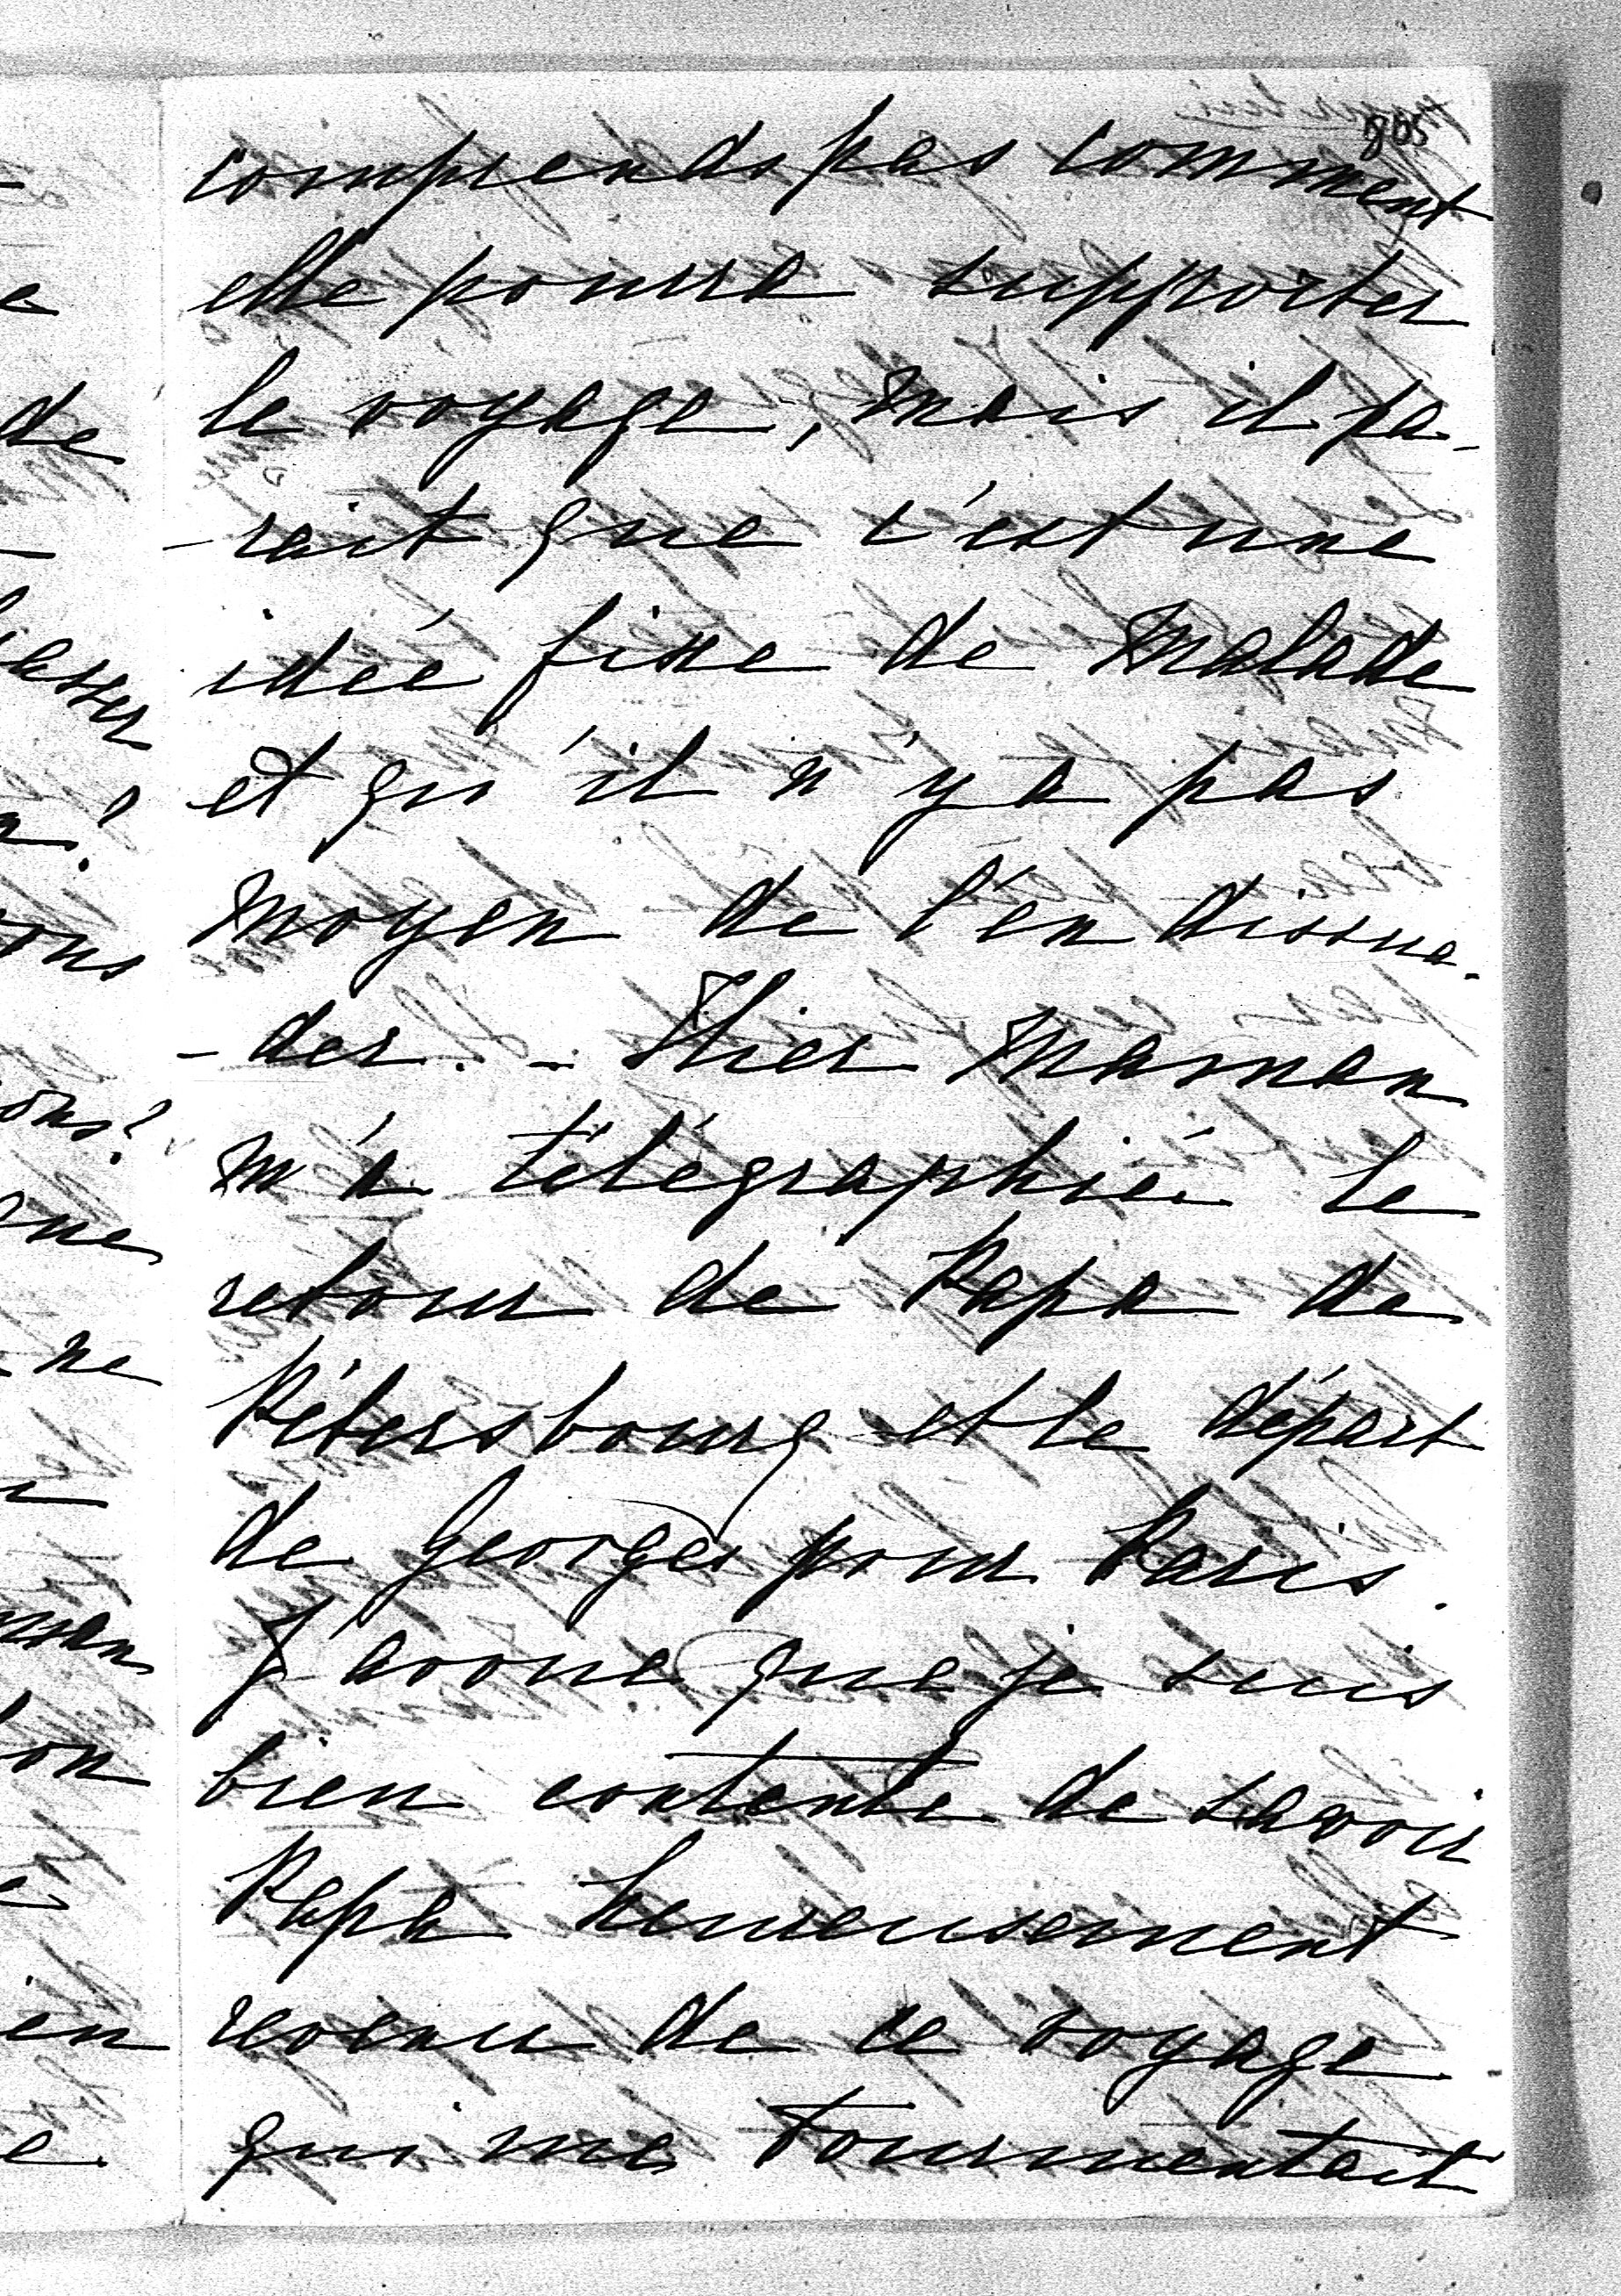 805
comprends pas comment
elle pourra supporter
le voyage, mais il pa-
-rait que c'est une
idée fixe de malade
et qu'il n'y a pas
moyen de l'en dissua-
-der. - Hier Maman
m'a télégraphié le
retour de Papa de
Pétersbourg et le départ
de Georges pour Paris.
J'avoue que je suis
bien contente de savoir
Papa heureusement
revenu de ce voyage
qui me tourmentait